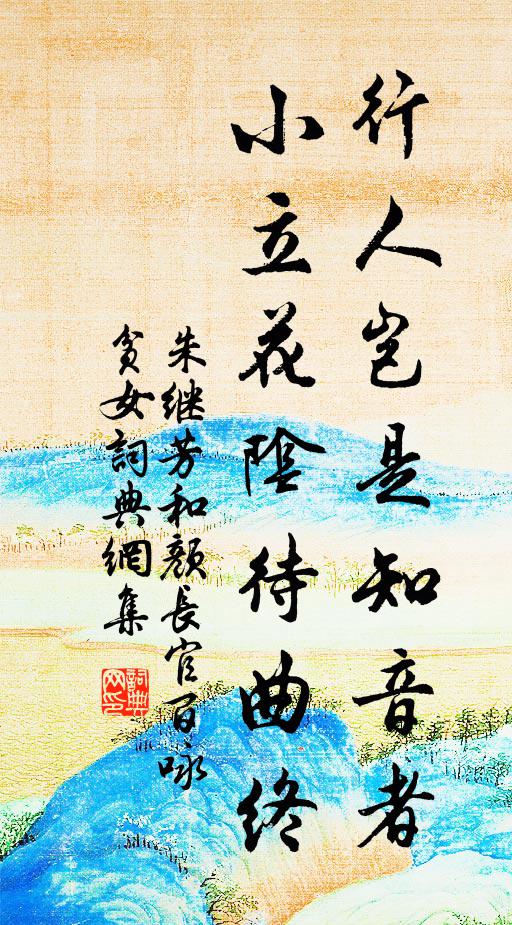 行人岂是知音者
小立花陰待曲终
朱继芳和颜長官百咏
貧女詞典網集
詞典
网印